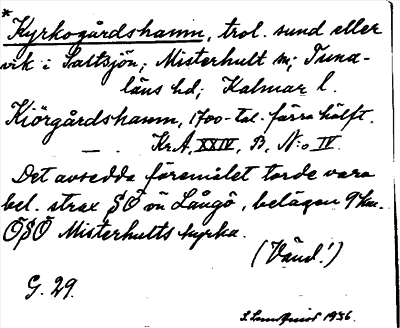 * Kyrkogårdshamn, trol. sund eller
vik i Saltsjön; Misterhult sn; Tuna-
läns hd; Kalmar l.
Kiörgårdshamn, 1700-tal. förra hälft.
— . Kr.A. XXIV, B, N:o IV.
Det avsedda föremålet torde vara
bel. strax SÖ om Långö, belägen 9 km.
ÖSÖ Misterhults kyrka.
(Vänd!)
G. 29.
1936